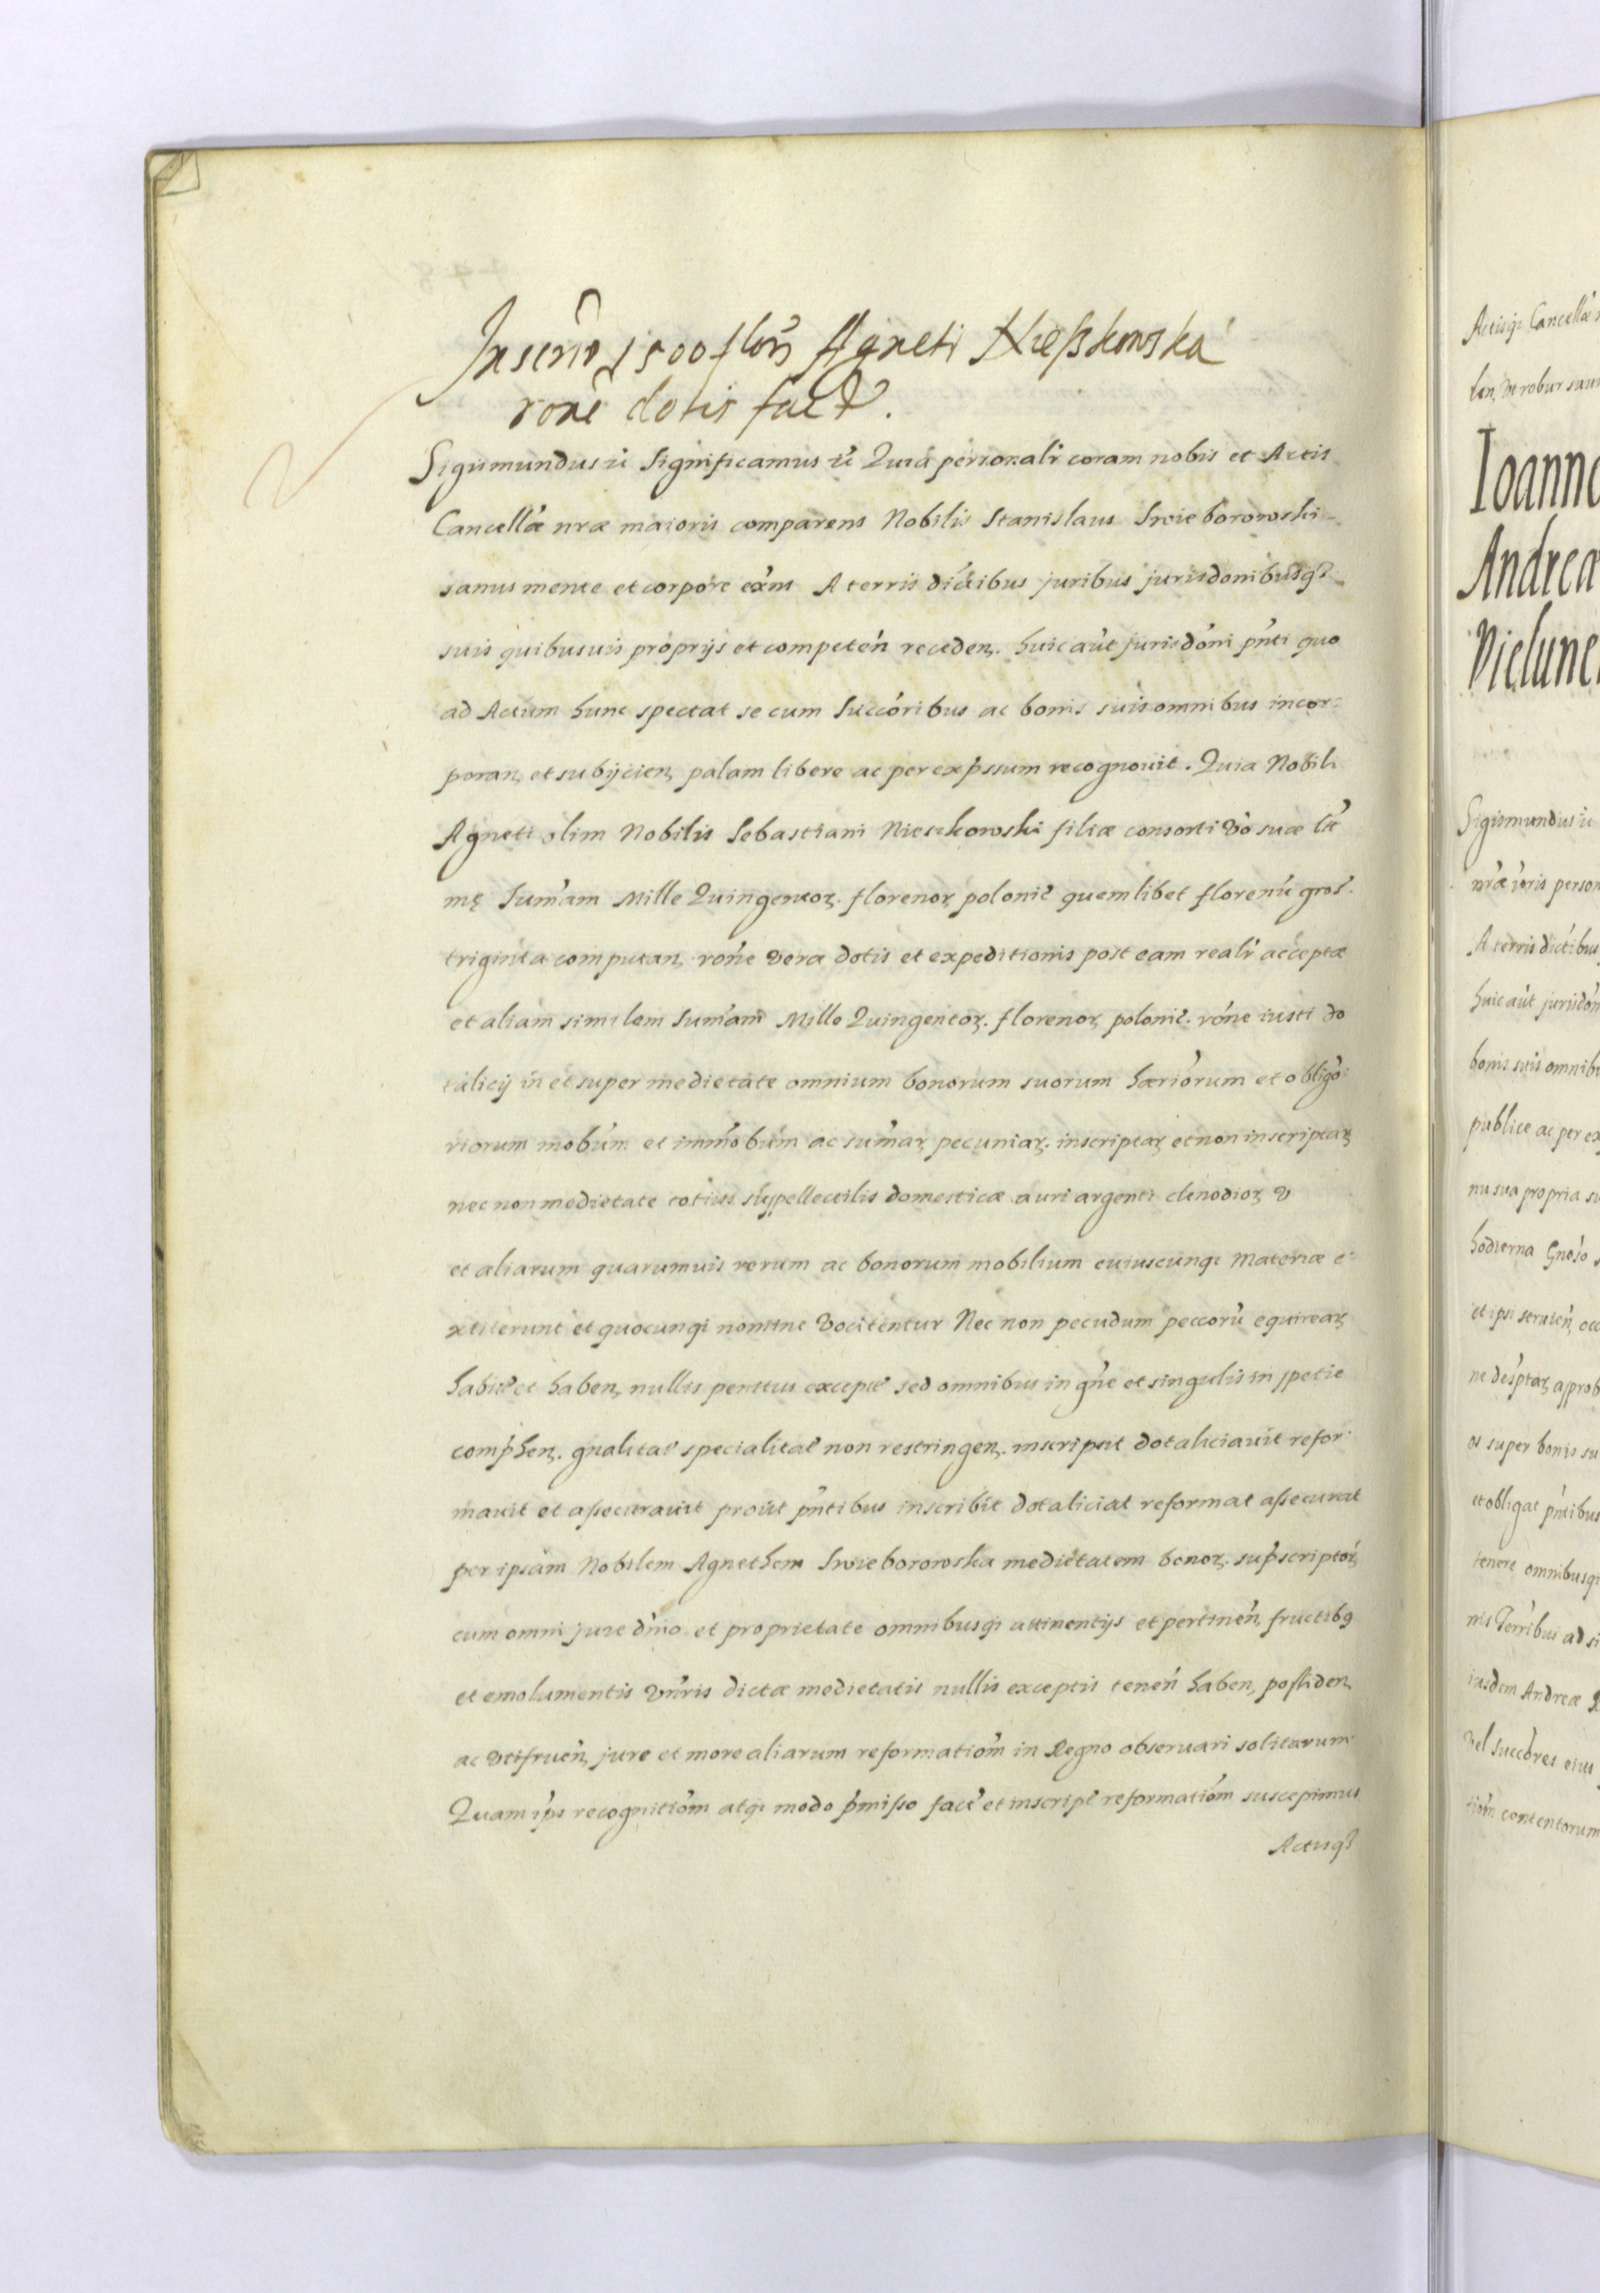 Inscrió 1500 flor̃ Agneti Nieszkowska
rońe dotis fact.
Sigismundus ič Significamus ič Quia personalr̃ coram nobis et Actis
Cancellæ nr̃æ maioris comparens Nobilis Stanislaus Swieborowski
sanus mente et corpore exn̄s A terris districtibus juribus jurisdonibusq3
suis quibusuis proprijs et competeń receden. huic aut̃ jurisdońi pn̄ti quo
ad Actum hunc spectat se cum Succoribus ac bonis suis omnibus incor-
poran, et subijcien, palam libere ac per exp̃ssum recognouit. Quia Nobili
Agneti olim Nobilis Sebastiani Nieszkowski filiæ consorti vo suæ
Sum̃am Mille Quingentoꝝ. florenoꝝ polonic̃ quemlibet florenũ gros.
triginta computan, rońe veræ dotis et expeditionis post eam realr̃ acceptæ
et aliam similem Sum̃am Mille Quingentoꝝ. florenoꝝ polonic̃. rońe iusti do
talicij in et super medietate omnium bonorum suorum hæriorum et obligo-
riorum mobũm et im̃mobũm ac sum̃aꝝ pecuniaꝝ. inscriptaꝝ et non inscriptaꝝ
nec non medietate totius suppellectilis domesticæ auri argenti clenodioꝝ
et aliarum quarumuis rerum ac bonorum mobilium cuiuscunqꝫ Materiæ e-
xtiterunt et quocunqꝫ nomine vocitentur Nec non pecudum peccorũ equireaꝝ
habit̃ et haben, nullis penitus except̃ sed omnibus in gńe et singulis in specie
comp̃hen. gnalitat̃ specialitat̃ non restringen. inscripsit dotaliciauit refor-
mauit et assecurauit prout pn̄tibus inscribit dotaliciat reformat assecurat
per ipsam Nobilem Agnethem Swieborowska medietatem bonoꝝ. sup̃scriptoꝝ
cum omni jure dńio et proprietate omnibusqꝫ attinentijs et pertineń, fructibꝯ
et emolumentis vn̄ris dictæ medietatis nullis exceptis teneń haben, possiden,
ac vtifrueń, jure et more aliarum reformatiom̃ in Regno obseruari solitarum
Quam ip̃s recognitiom̃ atqꝫ modo p̃misso fact̃ et inscript̃ reformatiom̃ suscepimus
Actisq3
Actisqꝫ Cancellæ
Ioanne
Andrea
Vielune
Sigismundus ič
nr̃æ
A terris
huic aut̃
bonis suis omnib
publice ac per ex
nu sua propria
hodierna
et ipsi
super bonis su
et obligat pn̄tibus
tenere omnibusqꝫ
ad si
iusdem Andreæ
vel succores eius
contentorum